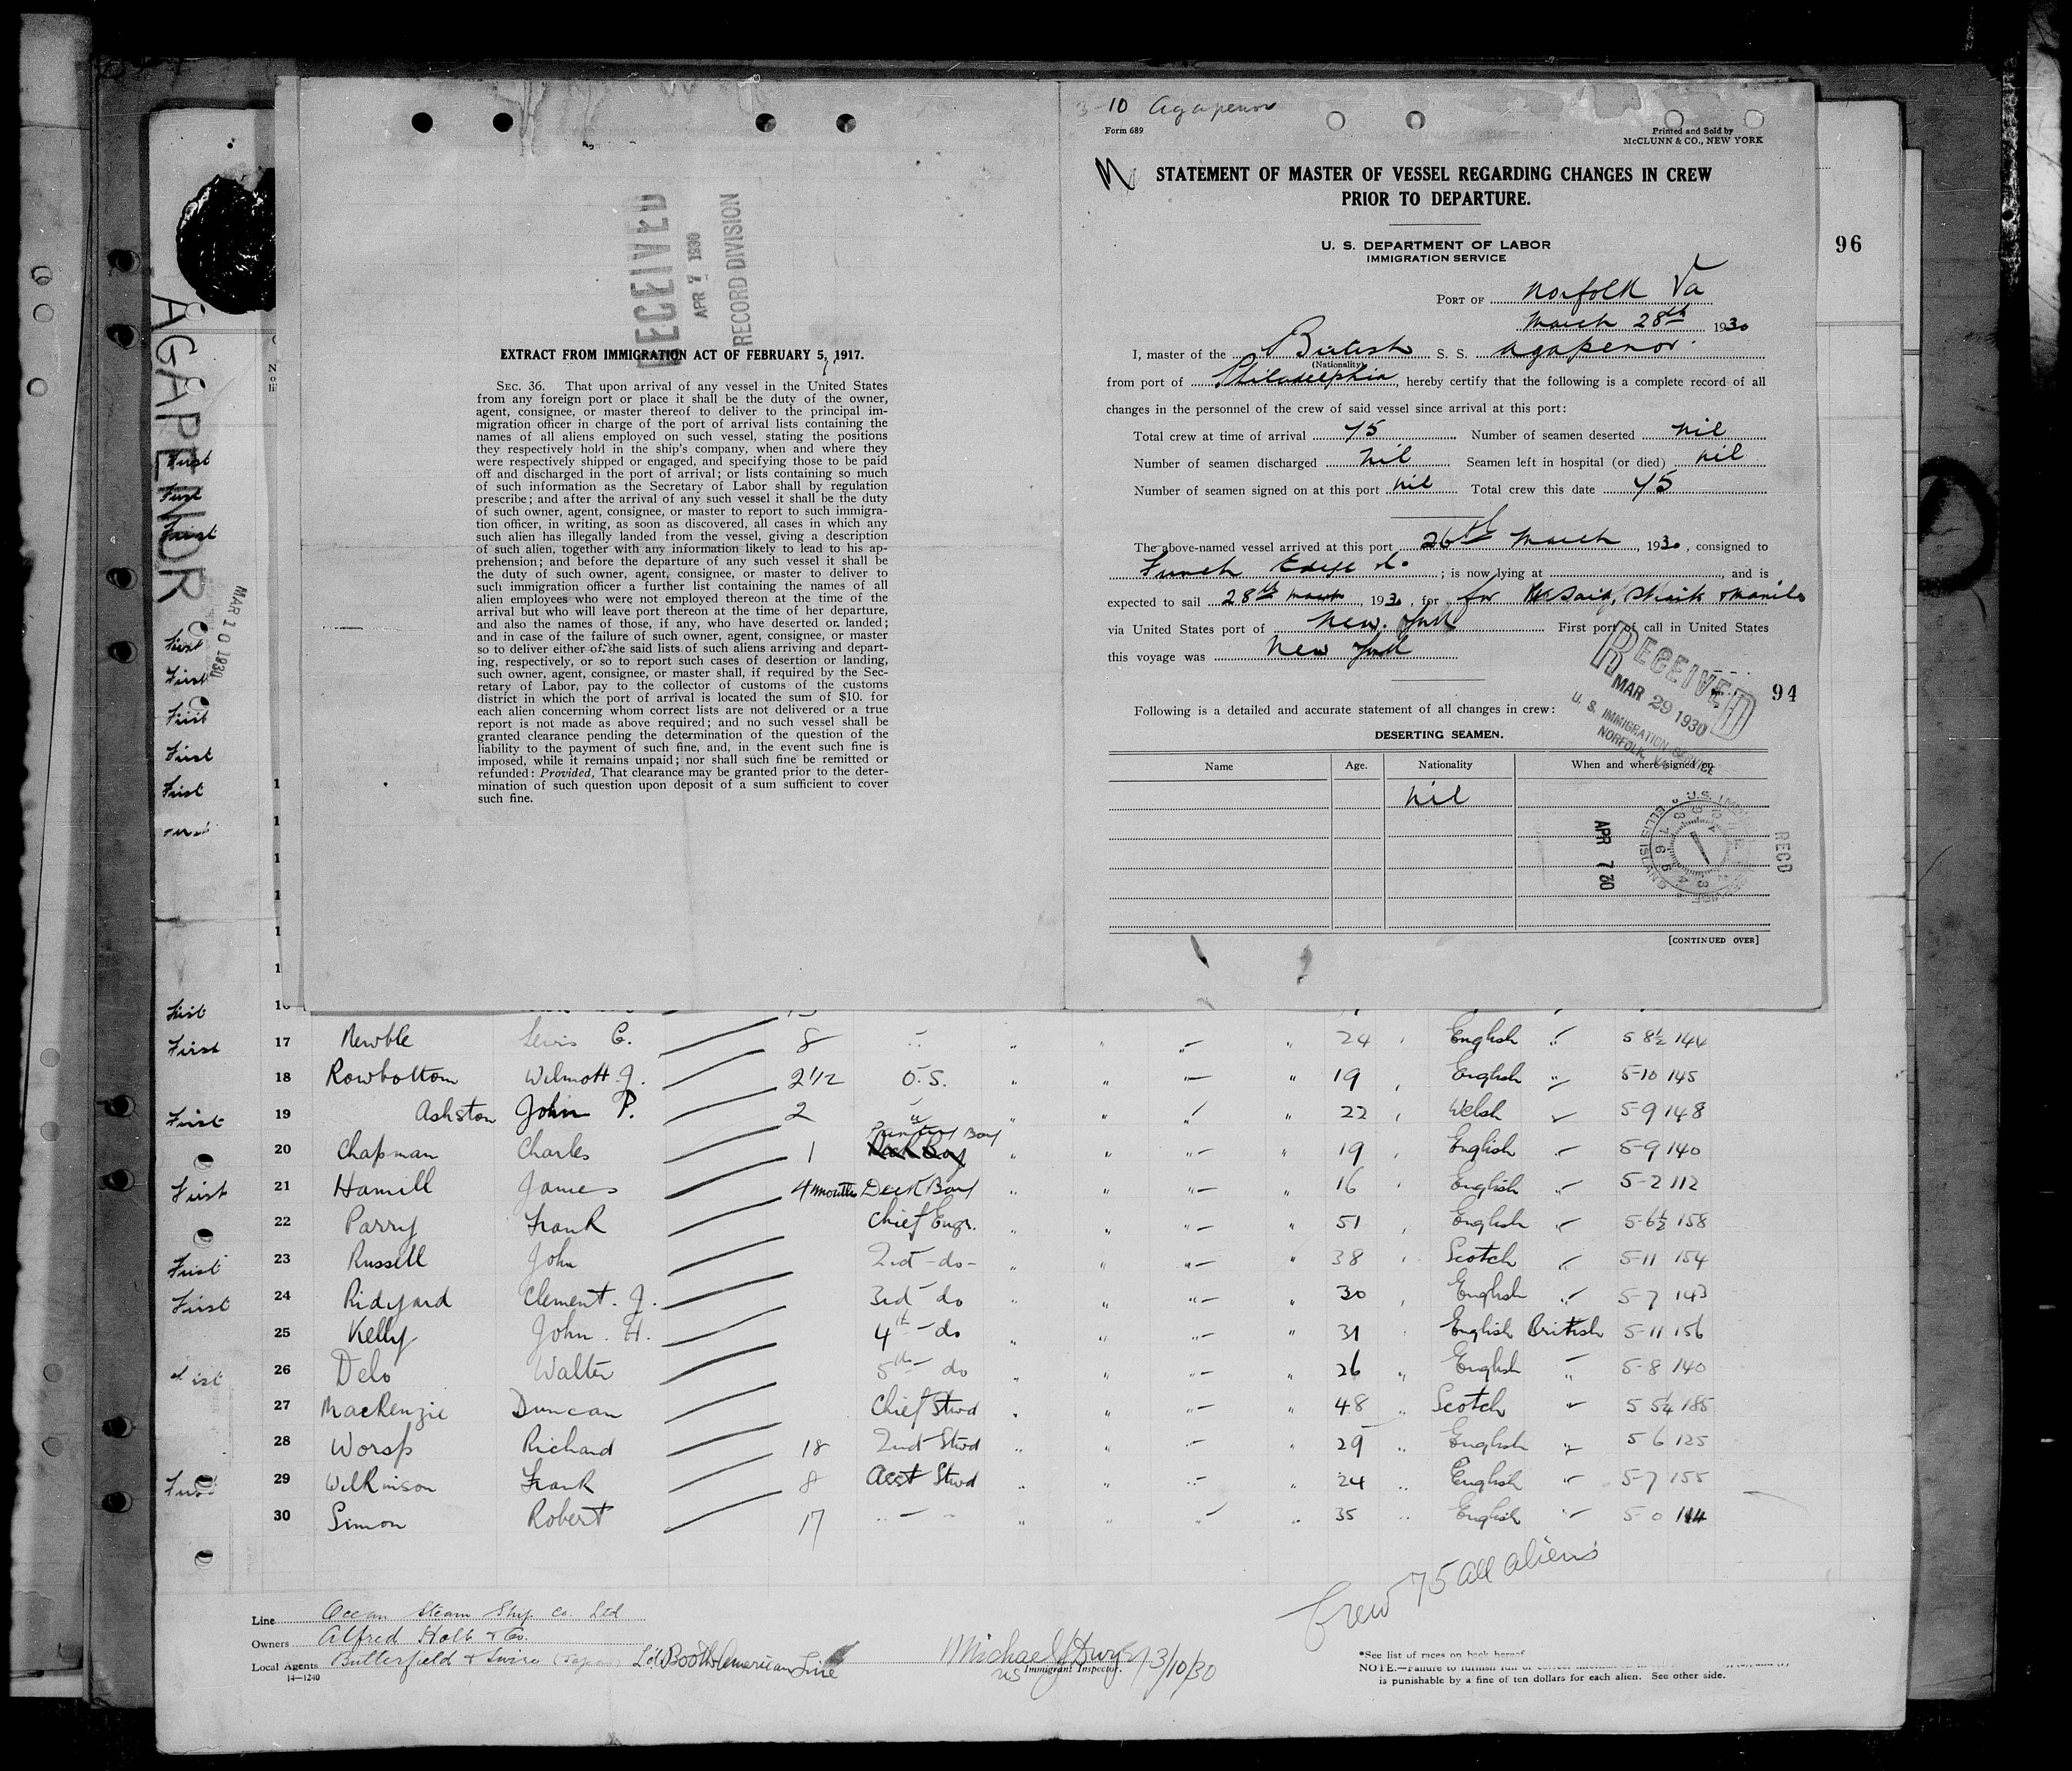 96
AGAPENOR
MAR 10 1930
RECEIVED
APR 7 1930
RECORD DIVISION
EXTRACT FROM IMMIGRATION ACT OF FEBRUARY 5, 1917.
SEC. 36. That upon arrival of any vessel in the United States
from any foreign port or place it shall be the duty of the owner,
agent, consignee, or master thereof to deliver to the principal im-
migration officer in charge of the port of arrival lists containing the
names of all aliens employed on such vessel, stating the positions
they respectively hold in the ship's company, when and where they
were respectively shipped or engaged, and specifying those to be paid
off and discharged in the port of arrival; or lists containing so much
of such information as the Secretary of Labor shall by regulation
prescribe; and after the arrival of any such vessel it shall be the duty
of such owner, agent, consignee, or master to report to such immigra-
tion officer, in writing, as soon as discovered, all cases in which any
such alien has illegally landed from the vessel, giving a description
of such alien, together with any information likely to lead to his ap-
prehension; and before the departure of any such vessel it shall be
the duty of such owner, agent, consignee, or master to deliver to
such immigration officer a further list containing the names of all
alien employees who were not employed thereon at the time of the
arrival but who will leave port thereon at the time of her departure,
and also the names of those, if any, who have deserted or landed;
and in case of the failure of such owner, agent, consignee, or master
so to deliver either of the said lists of such aliens arriving and depart-
ing, respectively, or so to report such cases of desertion or landing,
such owner, agent, consignee, or master shall, if required by the Sec-
retary of Labor, pay to the collector of customs of the customs
district in which the port of arrival is located the sum of $10. for
each alien concerning whom correct lists are not delivered or a true
report is not made as above required; and no such vessel shall be
granted clearance pending the determination of the question of the
liability to the payment of such fine, and, in the event such fine is
imposed, while it remains unpaid; nor shall such fine be remitted or
refunded: Provided, That clearance may be granted prior to the deter-
mination of such question upon deposit of a sum sufficient to cover
such fine.
3-10 Agapenor
Form 689
Printed and Sold by
McCLUNN & CO., NEW YORK
STATEMENT OF MASTER OF VESSEL REGARDING CHANGES IN CREW
PRIOR TO DEPARTURE.
U. S. DEPARTMENT OF LABOR
IMMIGRATION SERVICE
PORT OF Norfolk Va
March 28th 1930
I, master of the British S. S. Agapenor.
(Nationality)
from port of Philadelphia, hereby certify that the following is a complete record of all
changes in the personnel of the crew of said vessel since arrival at this port:
Total crew at time of arrival 75 Number of seamen deserted nil
Number of seamen discharged nil Seamen left in hospital (or died) nil
Number of seamen signed on at this port nil Total crew this date 75
The above-named vessel arrived at this port 26th March, 1930, consigned to
Funch Edye & Co; is now lying at , and is
expected to sail 28th March, 1930, for for Pt Said, Straits & Manila
via United States port of New York First port of call in United States
this voyage was New York
RECEIVED
MAR 29 1930
U. S. IMMIGRATION SERVICE
NORFOLK, VA.
94
Following is a detailed and accurate statement of all changes in crew:
DESERTING SEAMEN.
Name Age. Nationality When and where signed on
nil
APR 7 30
RECD
[CONTINUED OVER]
First 17 Newble Lewis C. 8 " 24 English " 5 8½ 144
18 Rowbottom Wilmott J. 2 1/2 O.S. " 19 English " 5-10 145
First 19 Ashston John P. 2 " 22 Welsh " 5-9 148
20 Chapman Charles 1 Pantry Boy Deck Boy " 19 English " 5-9 140
First 21 Hamill James 4 months Deck Boy " 16 English " 5-2 112
22 Parry Frank Chief Engr. " 51 English " 5-6½ 158
First 23 Russell John 2nd -do- " 38 Scotch " 5-11 154
First 24 Ridyard Clement. J. 3rd - do " 30 English " 5-7 143
25 Kelly John. H. 4th - do " 31 English British 5-11 156
First 26 Delo Walter 5th - do " 26 English " 5-8 140
27 MacKenzie Duncan Chief Stwd " 48 Scotch " 5 5¼ 185
28 Worsp Richard 18 2nd Stwd " 29 English " 5 6 125
First 29 Wilkinson Frank 8 Asst Stwd " 24 English " 5-7 155
30 Simon Robert 17 " 35 English " 5-0 114
Crew 75 all aliens
Line Ocean Steam Ship Co. Ltd
Owners Alfred Holt & Co.
Local Agents Butterfield & Swire (Japan) Ltd Booth American Line
14—1240
Michael J Dwyer 3/10/30
US Immigrant Inspector.
*See list of races on back hereof
NOTE.—Failure to furnish full or correct information in
is punishable by a fine of ten dollars for each alien. See other side.